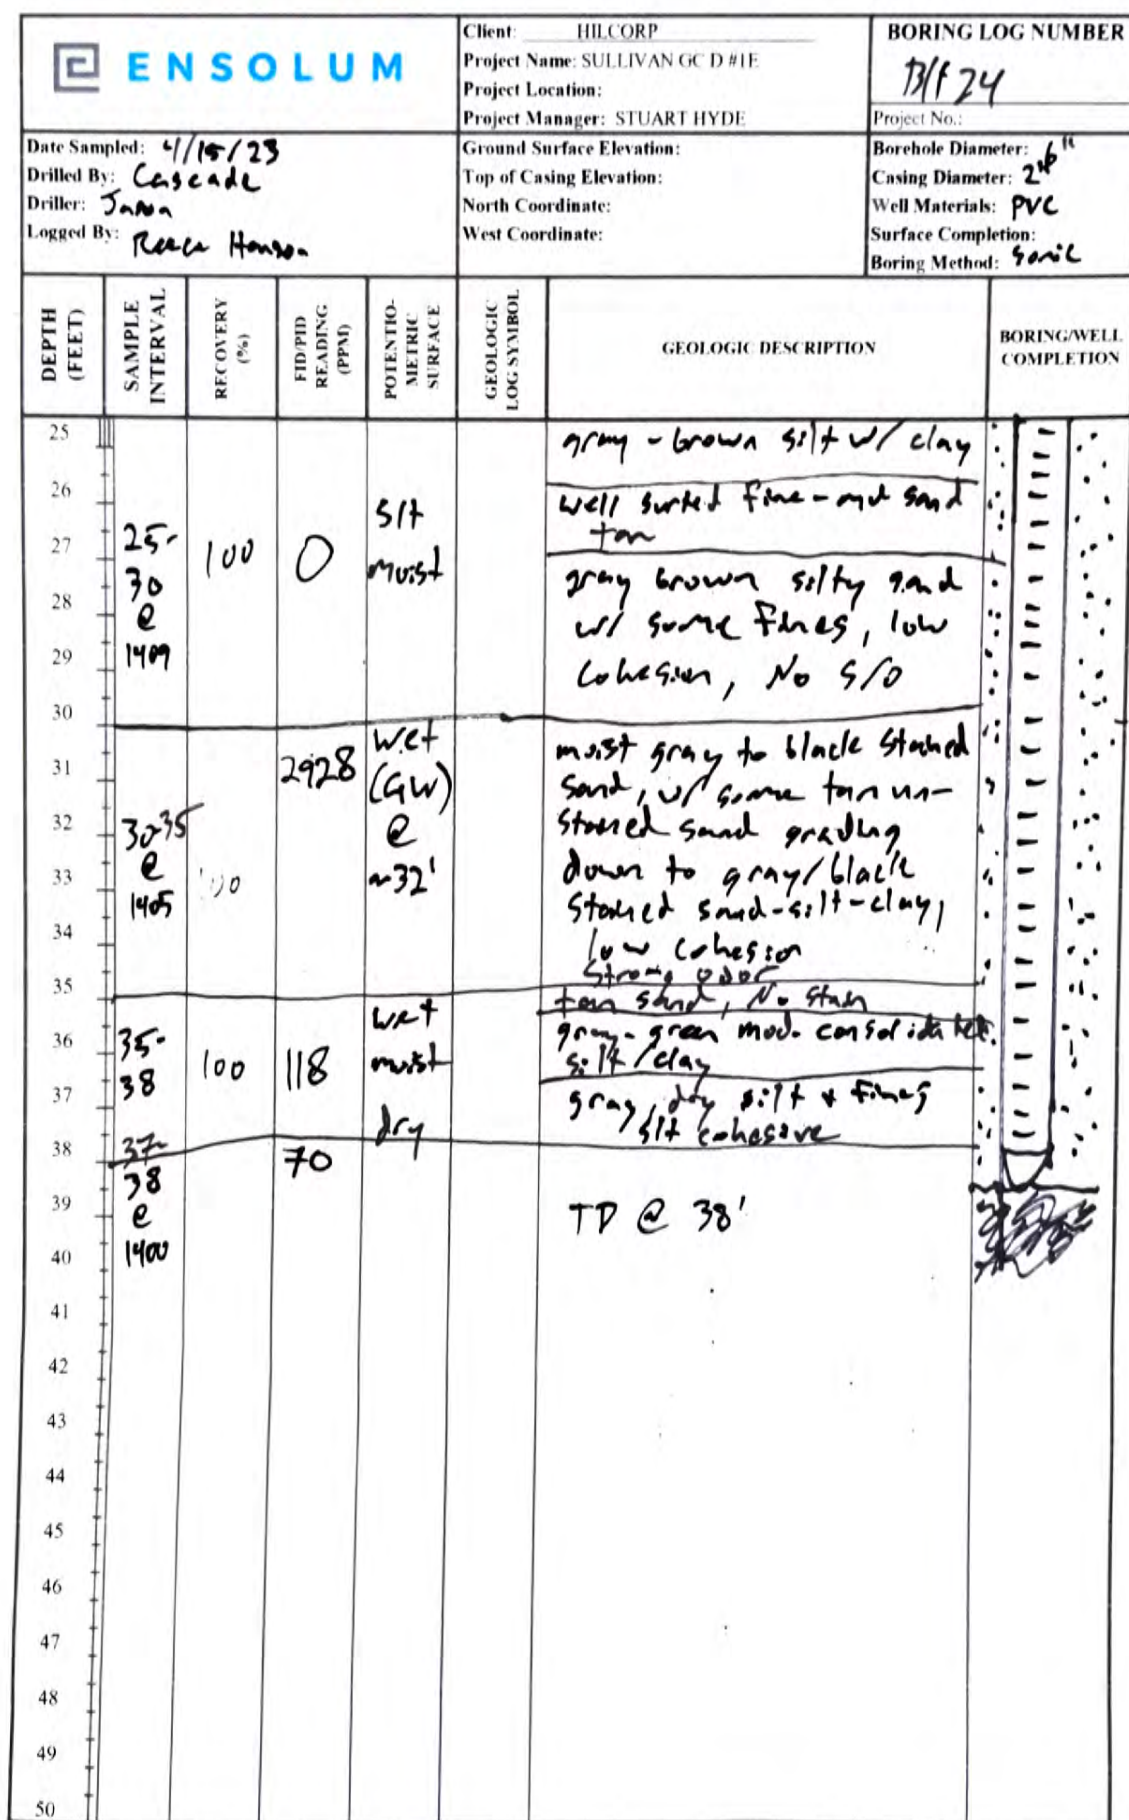 ENSOLUM
Client: HILCORP
Project Name: SULLIVAN GC D #1E
Project Location:
Project Manager: STUART HYDE
BORING LOG NUMBER
24
Project No.:
Date Sampled: 4/15/23
Drilled By: Cascade
Driller:
Logged By: Reece Hanson
Ground Surface Elevation:
Top of Casing Elevation:
North Coordinate:
West Coordinate:
Borehole Diameter: 6"
Casing Diameter: 2"
Well Materials: PVC
Surface Completion:
Boring Method: Sonic
DEPTH (FEET)
SAMPLE INTERVAL
RECOVERY (%)
FID/PID READING (PPM)
POTENTIO-METRIC SURFACE
GEOLOGIC LOG SYMBOL
GEOLOGIC DESCRIPTION
BORING/WELL COMPLETION
25
26
27
28
29
30
31
32
33
34
35
36
37
38
39
40
41
42
43
44
45
46
47
48
49
50
25-
30
@
1409
100
0
slt
moist
gray - brown silt w/ clay
well sorted fine - md sand
tan
gray brown silty sand
w/ some fines, low
cohesion, No S/O
30-35
@
1405
100
2928
wet
(GW)
@
~32'
moist gray to black stained
sand, w/ some tan un-
stained sand grading
down to gray/black
stained sand-silt-clay,
low cohesion
Strong odor
35-
38
100
118
wet
moist
dry
tan sand, No stain
gray-green mod. consolidated
silt/clay
gray, dry silt & fines
slt cohesive
37-
38
@
1400
70
TD @ 38'